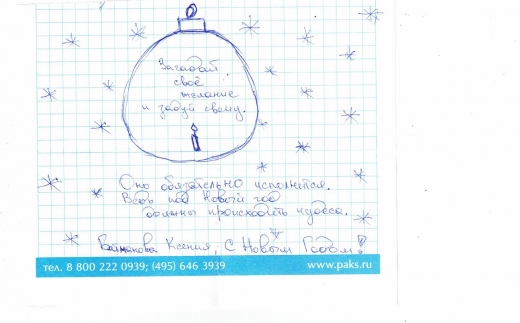 Загадай
своё
желание
и задуй свечу.
Оно обязательно исполнится.
Ведь под Новый год
должны происходить чудеса.
Ксения, с Новым Годом!
тел. 8 800 222 0939; (495) 646 3939
www.paks.ru